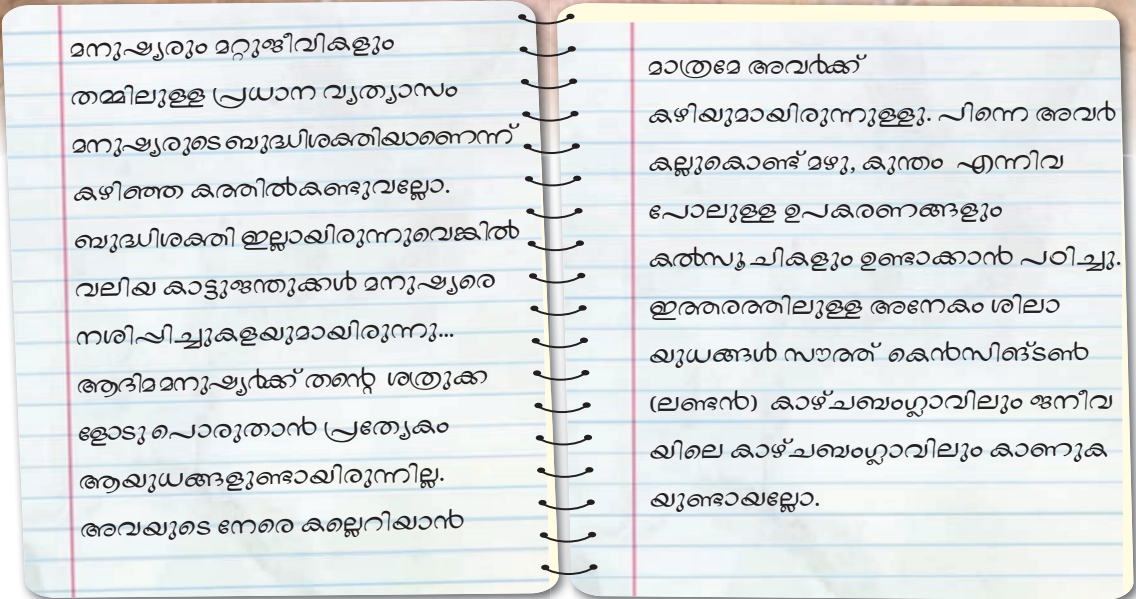 മനുഷ്യരും മറ്റുജീവികളും
തമ്മിലുള്ള പ്രധാന വ്യത്യാസം
മനുഷ്യരുടെ ബുദ്ധിശക്തിയാണെന്ന്
കഴിഞ്ഞ കത്തിൽകണ്ടുവല്ലോ.
ബുദ്ധിശക്തി ഇല്ലായിരുന്നുവെങ്കിൽ
വലിയ കാട്ടുജന്തുക്കൾ മനുഷ്യരെ
നശിപ്പിച്ചുകളയുമായിരുന്നു...
ആദിമമനുഷ്യർക്ക് തന്റെ ശത്രുക്ക
ളോടു പൊരുതാൻ പ്രത്യേകം
ആയുധങ്ങളുണ്ടായിരുന്നില്ല.
അവയുടെ നേരെ കല്ലെറിയാൻ
മാത്രമേ അവർക്ക്
കഴിയുമായിരുന്നുള്ളു. പിന്നെ അവർ
കല്ലുകൊണ്ട് മഴു, കുന്തം എന്നിവ
പോലുള്ള ഉപകരണങ്ങളും
കൽസൂചികളും ഉണ്ടാക്കാൻ പഠിച്ചു.
ഇത്തരത്തിലുള്ള അനേകം ശിലാ
യുധങ്ങൾ സൗത്ത് കെൻസിങ്ടൺ
(ലണ്ടൻ) കാഴ്ചബംഗ്ലാവിലും ജനീവ
യിലെ കാഴ്ചബംഗ്ലാവിലും കാണുക
യുണ്ടായല്ലോ.